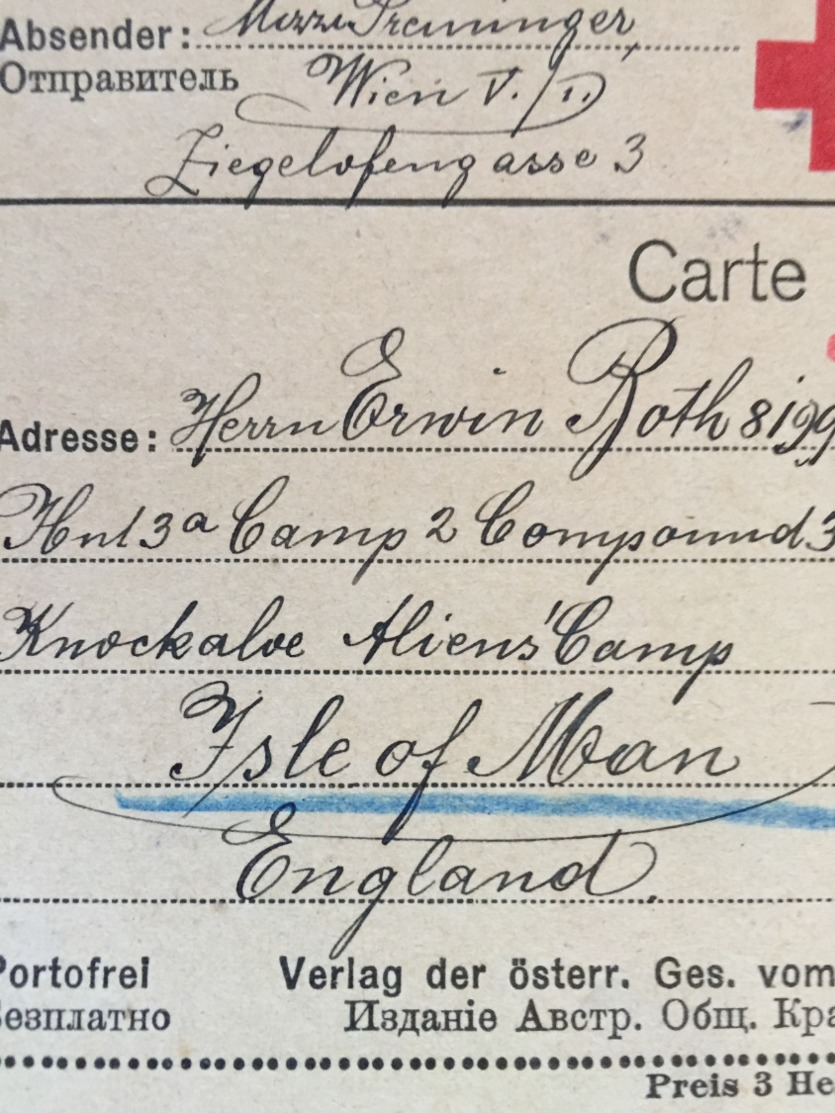 Absender: Mizzi Preminger,
Отправитель Wien V./1.
Ziegelofengasse 3
Carte
Adresse: Herrn Erwin Roth 8199
Hut 3a Camp 2 Compound 3
Knockaloe Aliens' Camp
Isle of Man
England.
Portofrei Verlag der österr. Ges. vom
Безплатно Изданіе Австр. Общ. Кра
Preis 3 He